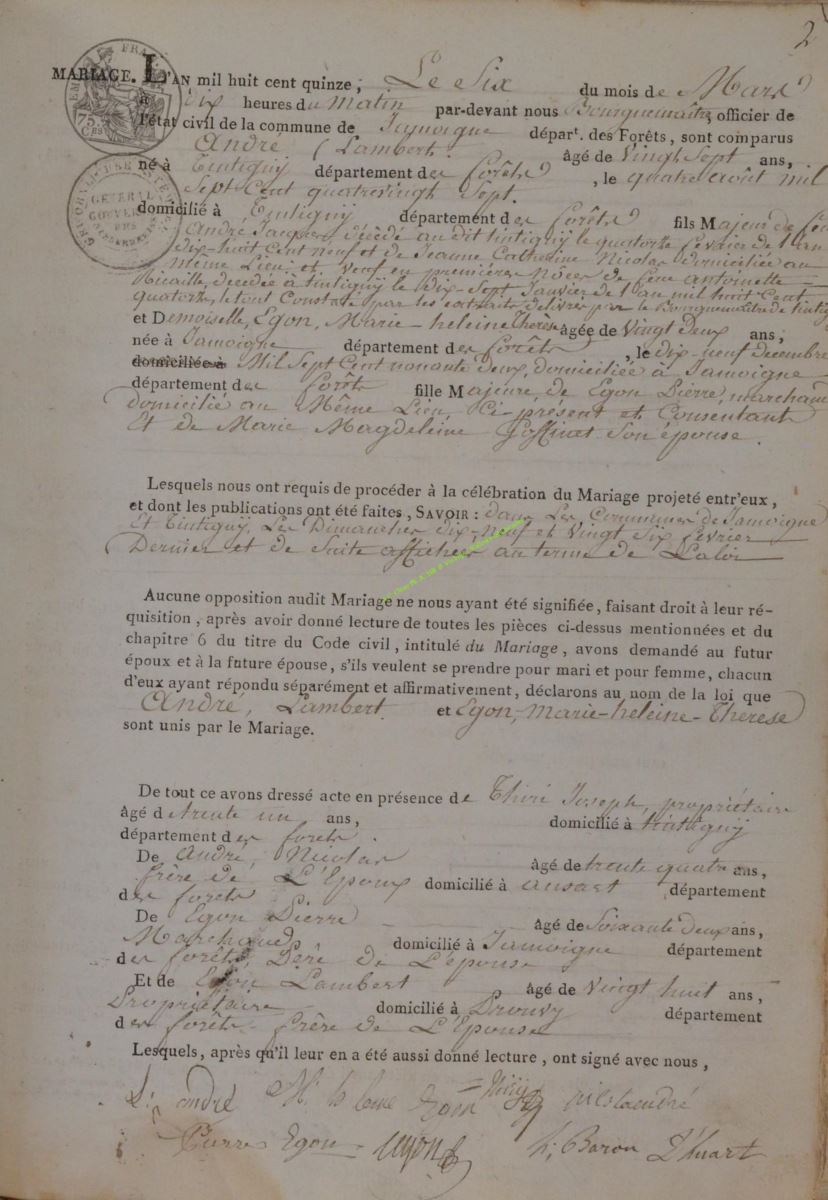 2
MARIAGE. L'AN mil huit cent quinze, Le Six du mois de Mars
à Dix heures du Matin par-devant nous Bourguemaitre officier de
l'état civil de la commune de Jamoigne départ. des Forêts, sont comparus
André Lambert âgé de Vingt Sept ans,
né à Tintigny département des Forêts, le quatre août mil
Sept Cent quatrevingt Sept.
domicilié à Tintigny département des Forêts fils Majeur de feu
André Jacques décédé au dit tintigny le quatorze février de l'an
Dix-huit Cent neuf et de Jeanne Catherine Nicolas domiciliée au
même Lieu et Veuf en premières Nôces de feue Antoinette
décédée à tintigny le Dix-Sept Janvier de l'an mil huit Cent
quatorze, le tout Constaté par les extraits délivrés par le Bourguemaitre de tintigny
et Demoiselle, Egon, Marie-heleine Therese âgée de Vingt Deux ans,
née à Jamoigne département des forêts, le dix-neuf decembre
domiciliée à Mil Sept Cent nonante Deux, domiciliée à Jamoigne
département des Forêts fille Majeure, de Egon Pierre, marchand
domicilié au Même Lieu, Ci-présent et Consentant
Et de Marie Magdeleine Goffinet Son épouse.
Lesquels nous ont requis de procéder à la célébration du Mariage projeté entr'eux,
et dont les publications ont été faites, SAVOIR : dans Les Communes de Jamoigne
Et Tintigny, Les Dimanches dix-neuf et Vingt Six février
Dernier et de Suite affichées au terme de La loi
Aucune opposition audit Mariage ne nous ayant été signifiée, faisant droit à leur ré-
quisition, après avoir donné lecture de toutes les pièces ci-dessus mentionnées et du
chapitre 6 du titre du Code civil, intitulé du Mariage, avons demandé au futur
époux et à la future épouse, s'ils veulent se prendre pour mari et pour femme, chacun
d'eux ayant répondu séparément et affirmativement, déclarons au nom de la loi que
André, Lambert et Egon, marie-heleine-Therese
sont unis par le Mariage.
De tout ce avons dressé acte en présence de Thiri Joseph, propriétaire
âgé de trente un ans, domicilié à tintigny
département des forets.
De André, Nicolas âgé de trente quatre ans,
frère de L'Epoux domicilié à ansart département
des forets
De Egon Pierre âgé de Soixante deux ans,
Marchand domicilié à Jamoigne département
des forêts, Père de L'epouse
Et de Egon Lambert âgé de Vingt huit ans,
Propriétaire domicilié à Prouvy département
des forets, frère de L'Epouse
Lesquels, après qu'il leur en a été aussi donné lecture, ont signé avec nous,
L: andré
Pierre Egon L Egon h: Baron D'huart